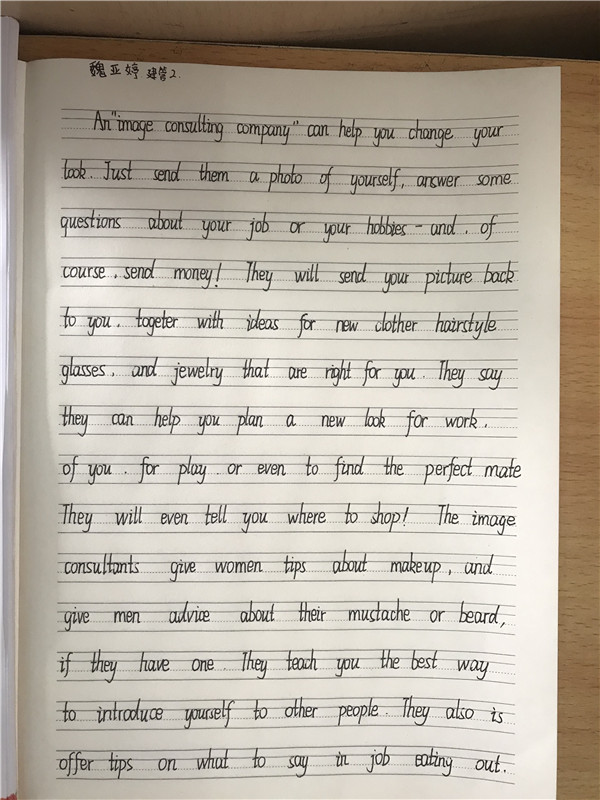 魏亚婷 建管2.
An "image consulting company" can help you change your
look. Just send them a photo of yourself, answer some
questions about your job or your hobbies - and, of
course, send money! They will send your picture back
to you, togeter with ideas for new clother hairstyle
glasses, and jewelry that are right for you. They say
they can help you plan a new look for work,
of you. for play. or even to find the perfect mate
They will even tell you where to shop! The image
consultants give women tips about makeup, and
give men advice about their mustache or beard,
if they have one. They teach you the best way
to introduce yourself to other people. They also is
offer tips on what to say in job eating out.